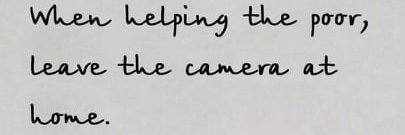 When helping the poor,
leave the camera at
home.